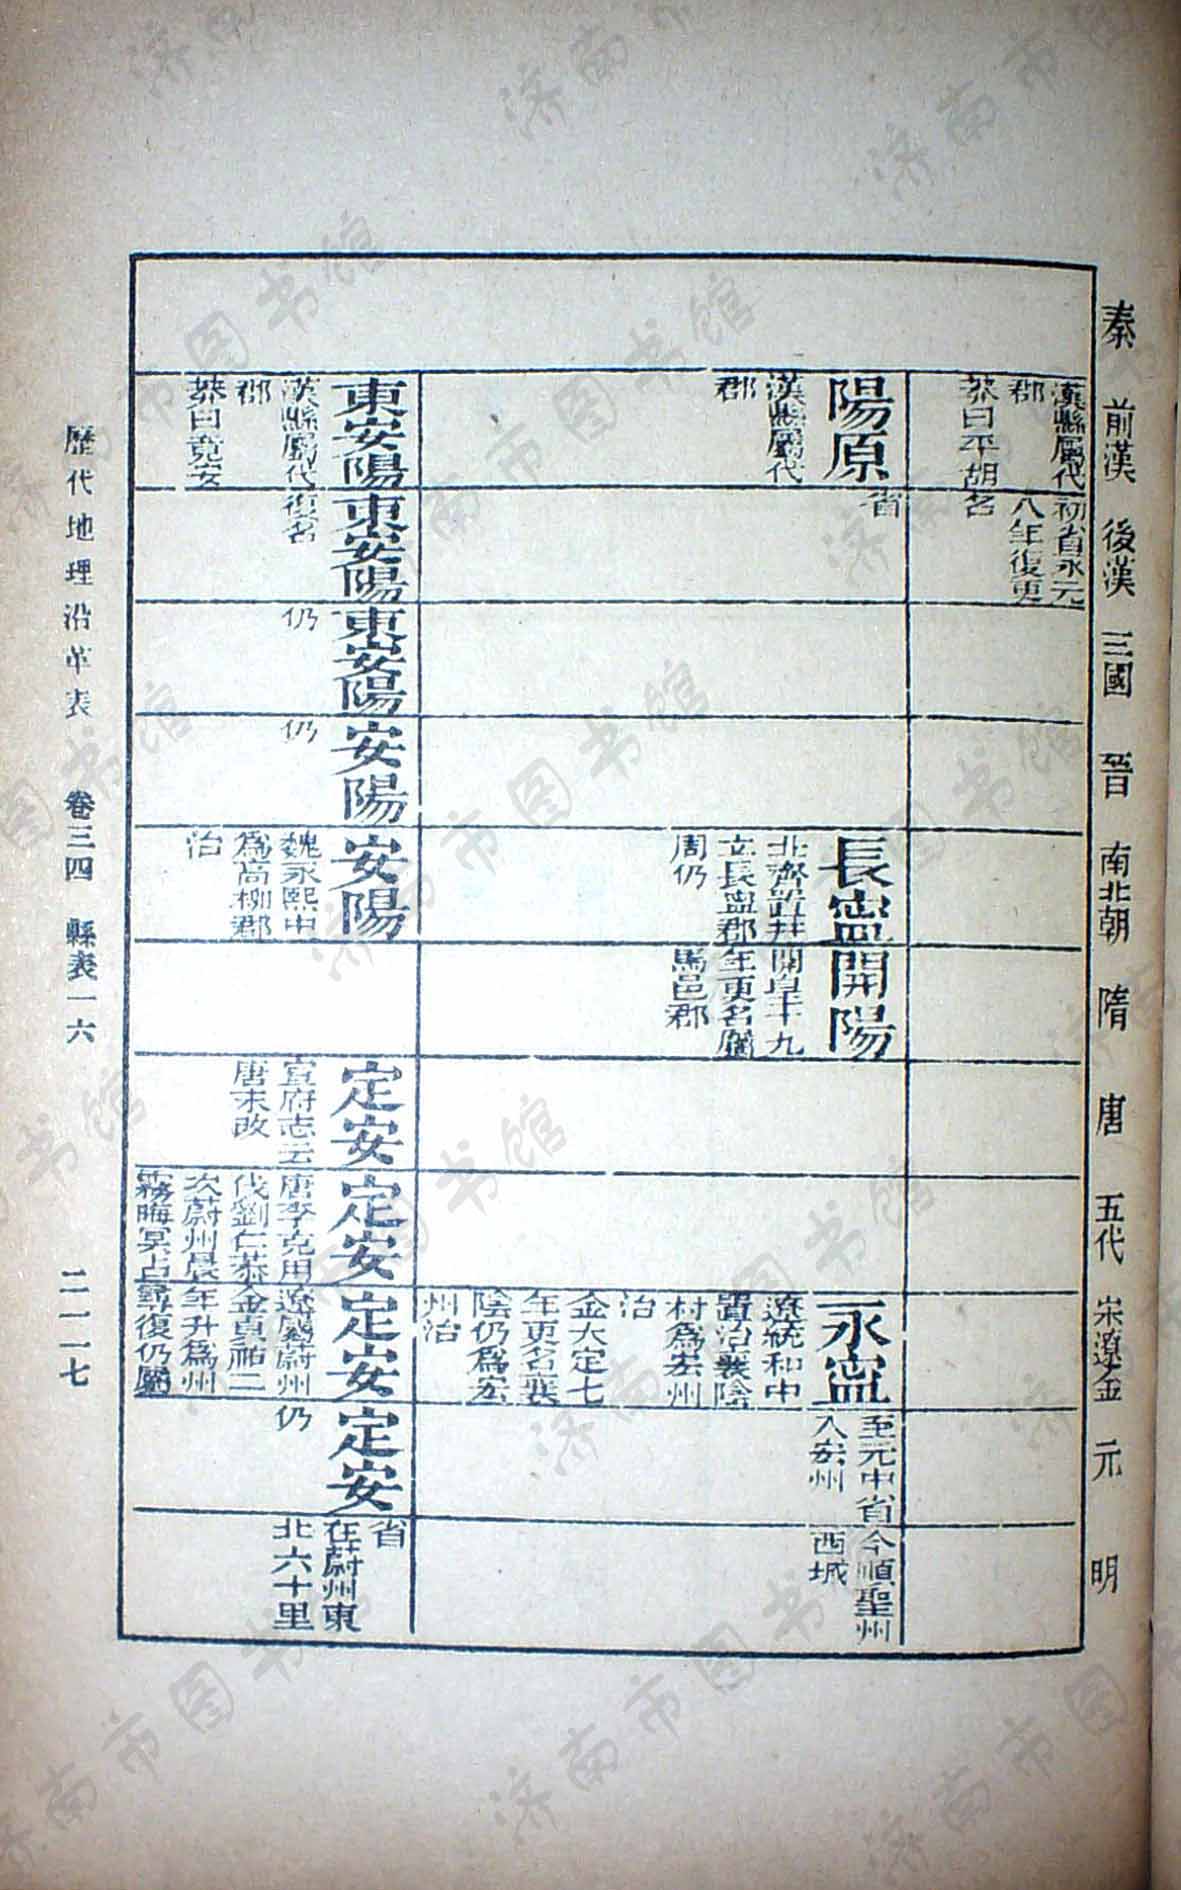 秦 前漢 後漢 三國 晉 南北朝 隋 唐 五代 宋遼金 元 明
漢縣屬代
郡
莽曰平胡
初省永元
八年復更
名
陽原
漢縣屬代
郡
省
長寧
北齊置幷
立長寧郡
周仍
開陽
開皇十九
年更名屬
馬邑郡
永寧
遼統和中
置治襄陰
村爲宏州
治
金大定七
年更名襄
陰仍爲宏
州治
至元中省
入宏州
今順聖州
西城
東安陽
漢縣屬代
郡
莽曰竟安
東安陽
復名
東安陽
仍
安陽
仍
安陽
魏永熙中
爲高柳郡
治
定安
宣府志云
唐末改
定安
唐李克用
伐劉仁恭
次蔚州晨
霧晦冥占
定安
遼屬蔚州
金貞祐二
年升爲州
尋復仍屬
定安
仍
省
在蔚州東
北六十里
歷代地理沿革表 卷三四 縣表一六 二一一七
济南市图书馆